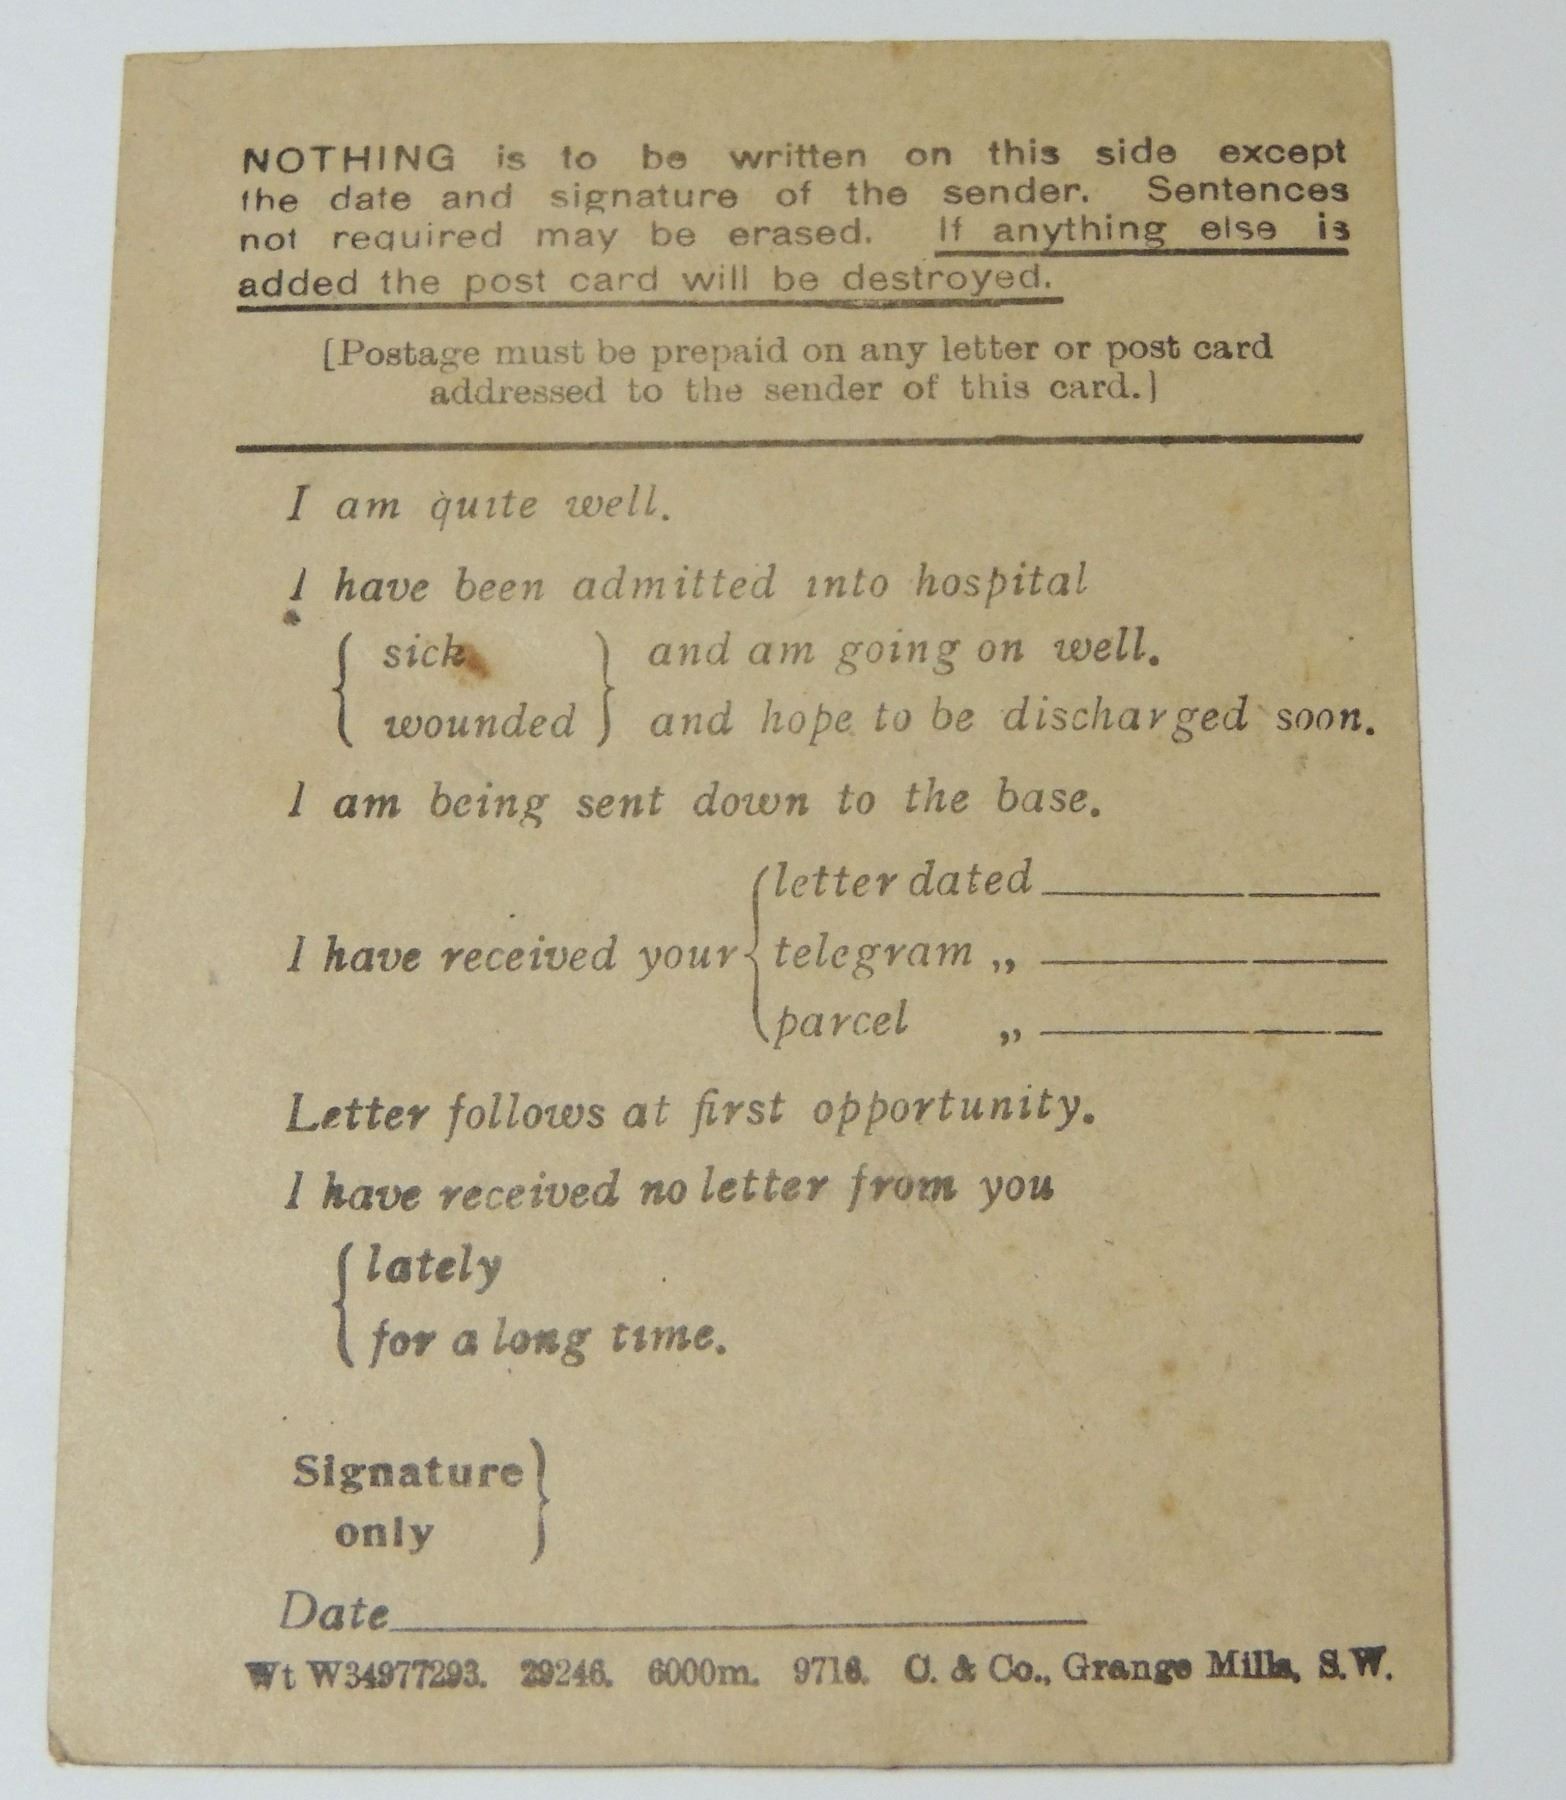 NOTHING is to be written on this side except
the date and signature of the sender. Sentences
not required may be erased. If anything else is
added the post card will be destroyed.
[Postage must be prepaid on any letter or post card
addressed to the sender of this card.]
I am quite well.
I have been admitted into hospital
{ sick } and am going on well.
{ wounded } and hope to be discharged soon.
I am being sent down to the base.
{ letter dated
I have received your { telegram „
{ parcel „
Letter follows at first opportunity.
I have received no letter from you
{ lately
{ for a long time.
Signature }
only }
Date
Wt W34977293. 29246. 6000m. 9716. C. & Co., Grange Mills, S.W.